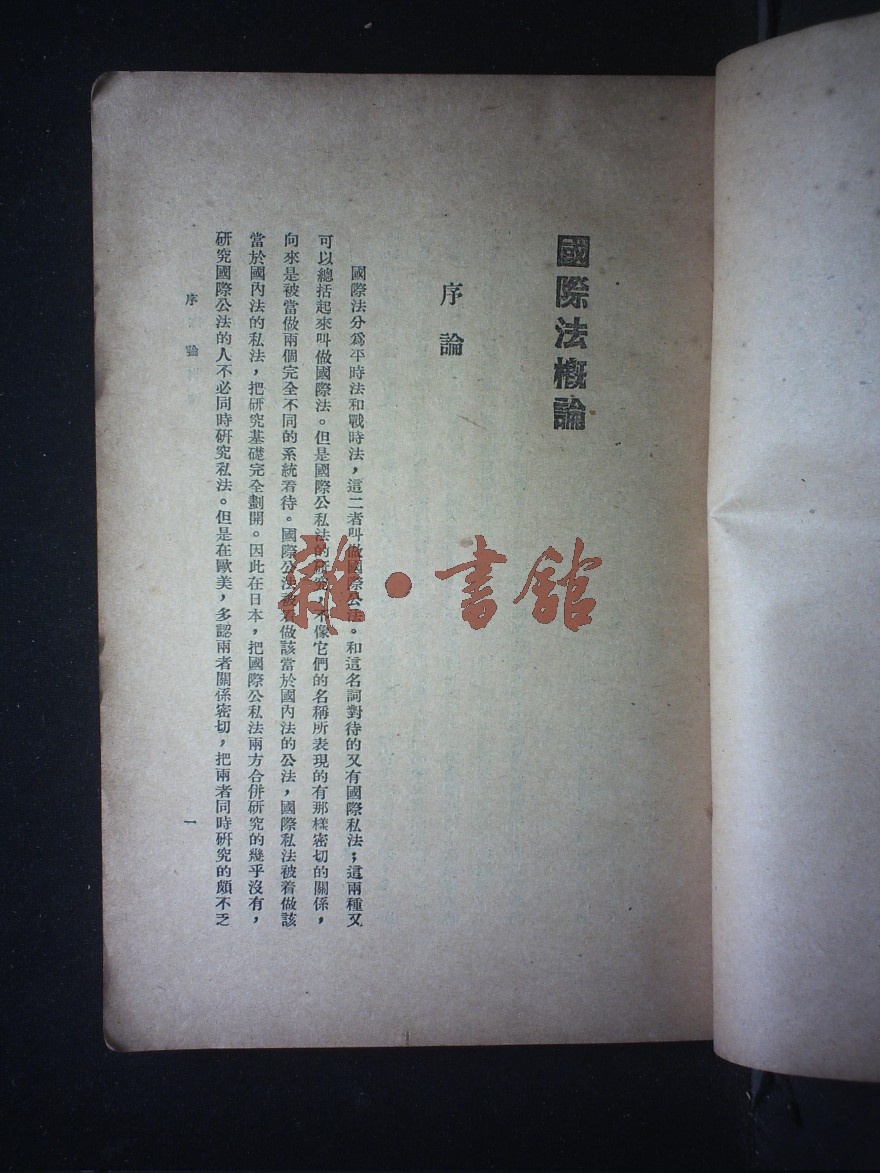 國際法概論
序論
國際法分爲平時法和戰時法，這二者叫做國際公法。和這名詞對待的又有國際私法；這兩種又
可以總括起來叫做國際法。但是國際公私法的研究，不像它們的名稱所表現的有那樣密切的關係，
向來是被當做兩個完全不同的系統看待。國際公法被看做該當於國內法的公法，國際私法被看做該
當於國內法的私法，把研究基礎完全劃開。因此在日本，把國際公私法兩方合併研究的幾乎沒有，
研究國際公法的人不必同時研究私法。但是在歐美，多認兩者關係密切，把兩者同時研究的頗不乏
序論
一
雜·書館